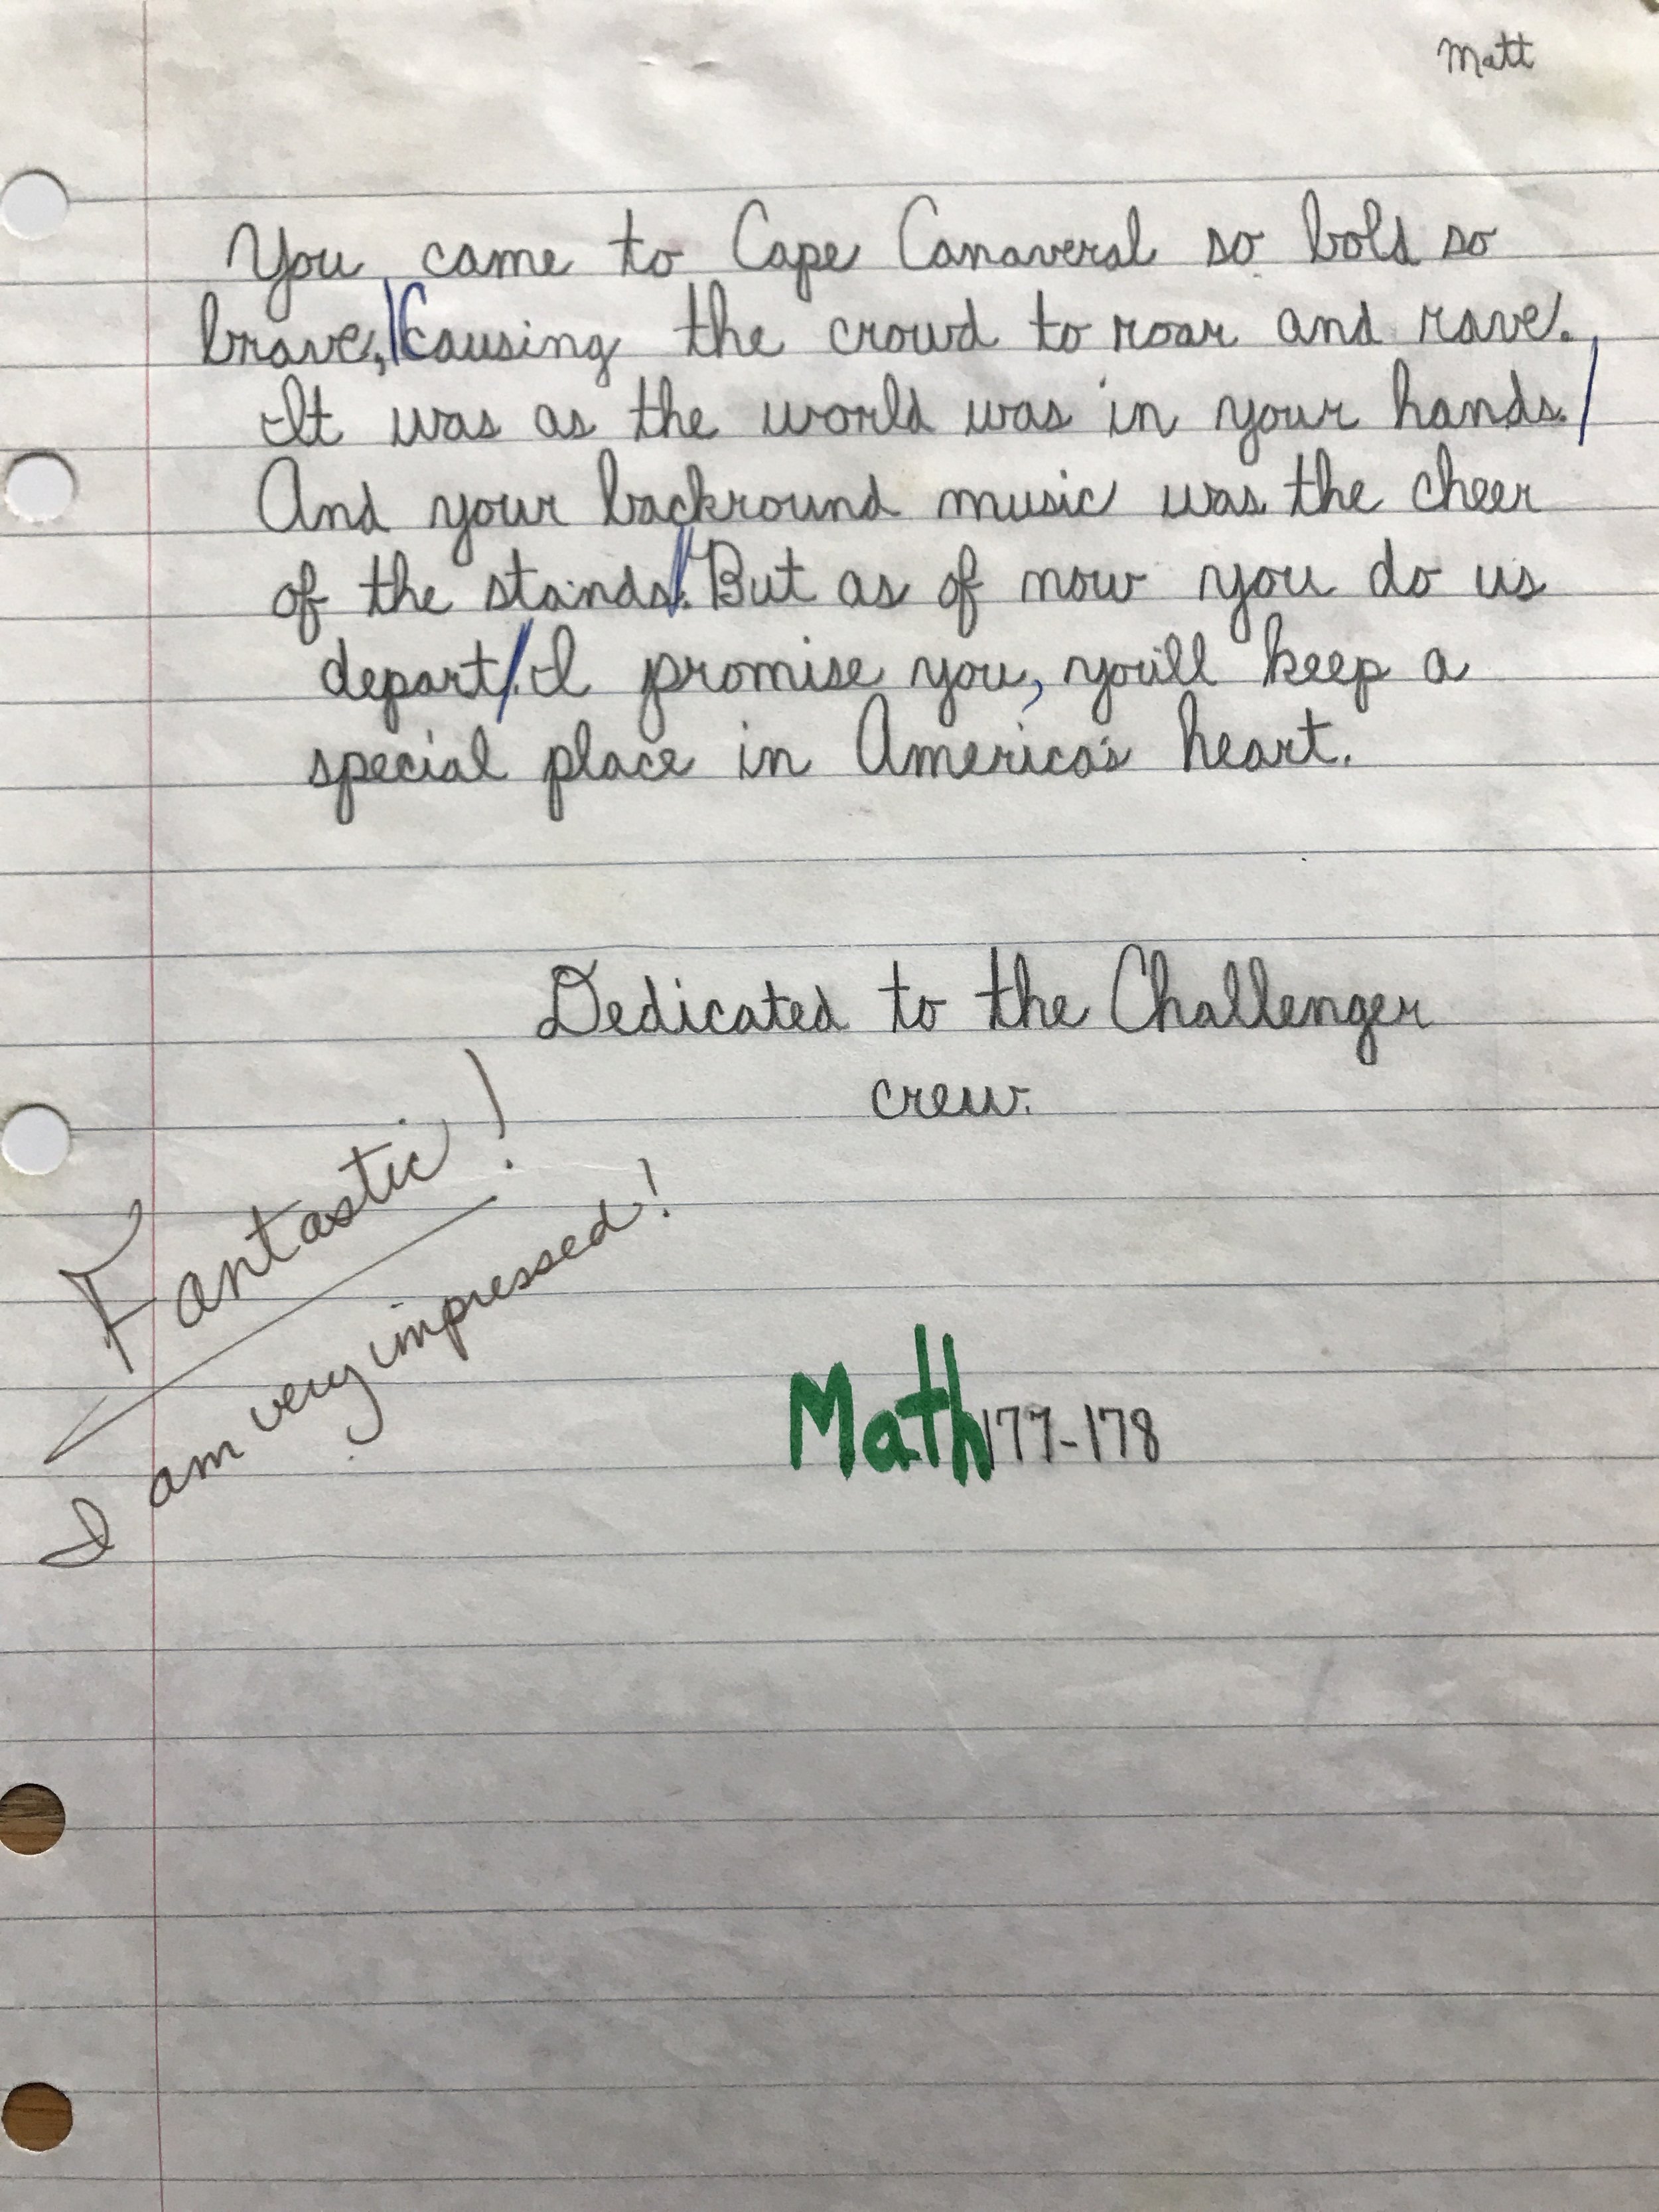 Matt
You came to Cape Canaveral so bold so
brave, Causing the crowd to roar and rave.
It was as the world was in your hands. /
And your backround music was the cheer
of the stands. / But as of now you do us
depart /. I promise you, you'll keep a
special place in America's heart.
Dedicated to the Challenger
crew.
Fantastic!
I am very impressed!
Math 177-178